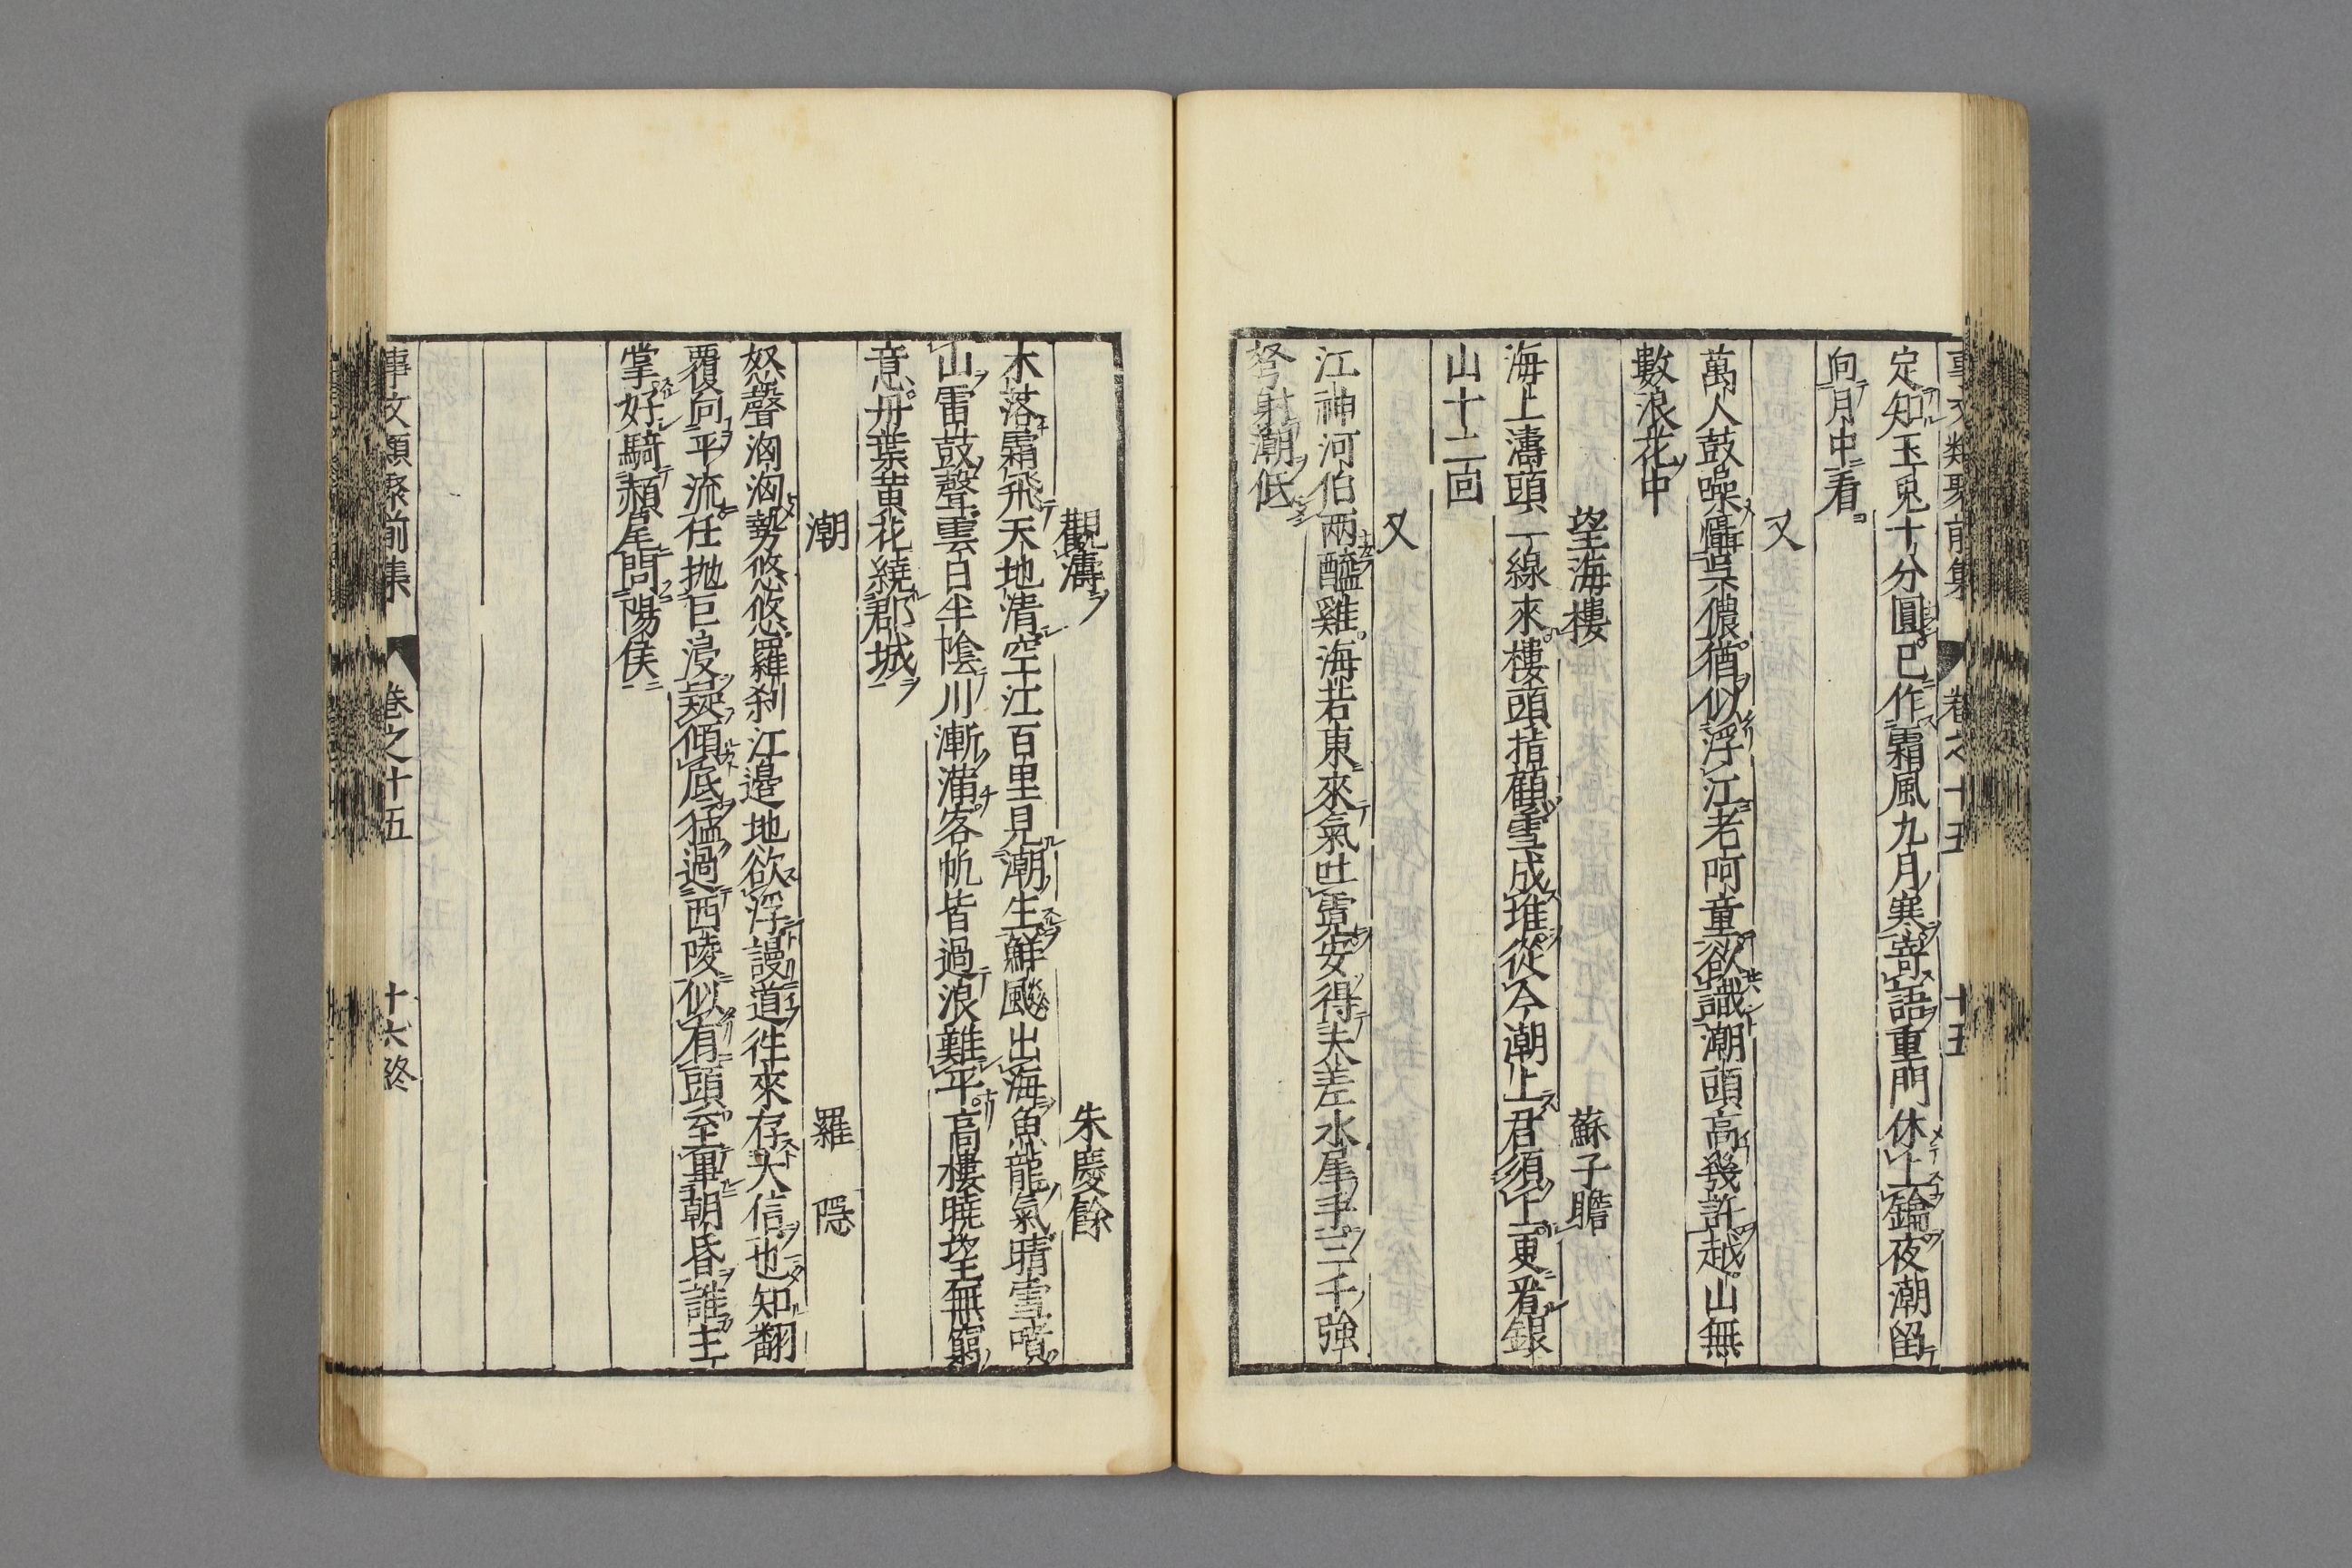 事文類聚前集 卷之十五 十五
定知玉兎十分圓已作霜風九月寒寄語重門休上鑰夜潮留
向月中看
又
萬人鼓噪懾吳儂猶似浮江老阿童欲識潮頭高幾許越山無
數浪花中
望海樓 蘇子瞻
海上濤頭一線來樓頭指顧雪成堆從今潮上君須上更看銀
山十二回
又
江神河伯兩醯雞海若東來氣吐霓安得夫差水犀手三千強
弩射潮低
觀濤 朱慶餘
木落霜飛天地清空江百里見潮生鮮飈出海魚龍氣晴雪噴
山雷鼓聲雲日半陰川漸滿客帆皆過浪難平高樓曉望無窮
意丹葉黃花繞郡城
潮 羅隱
怒聲洶洶勢悠悠羅刹江邉地欲浮謾道徃來存大信也知翻
覆向平流任抛巨浸疑傾底猛過西陵似有頭至竟朝昏誰主
掌好騎赬尾問陽侯
事文類聚前集 卷之十五 十六終